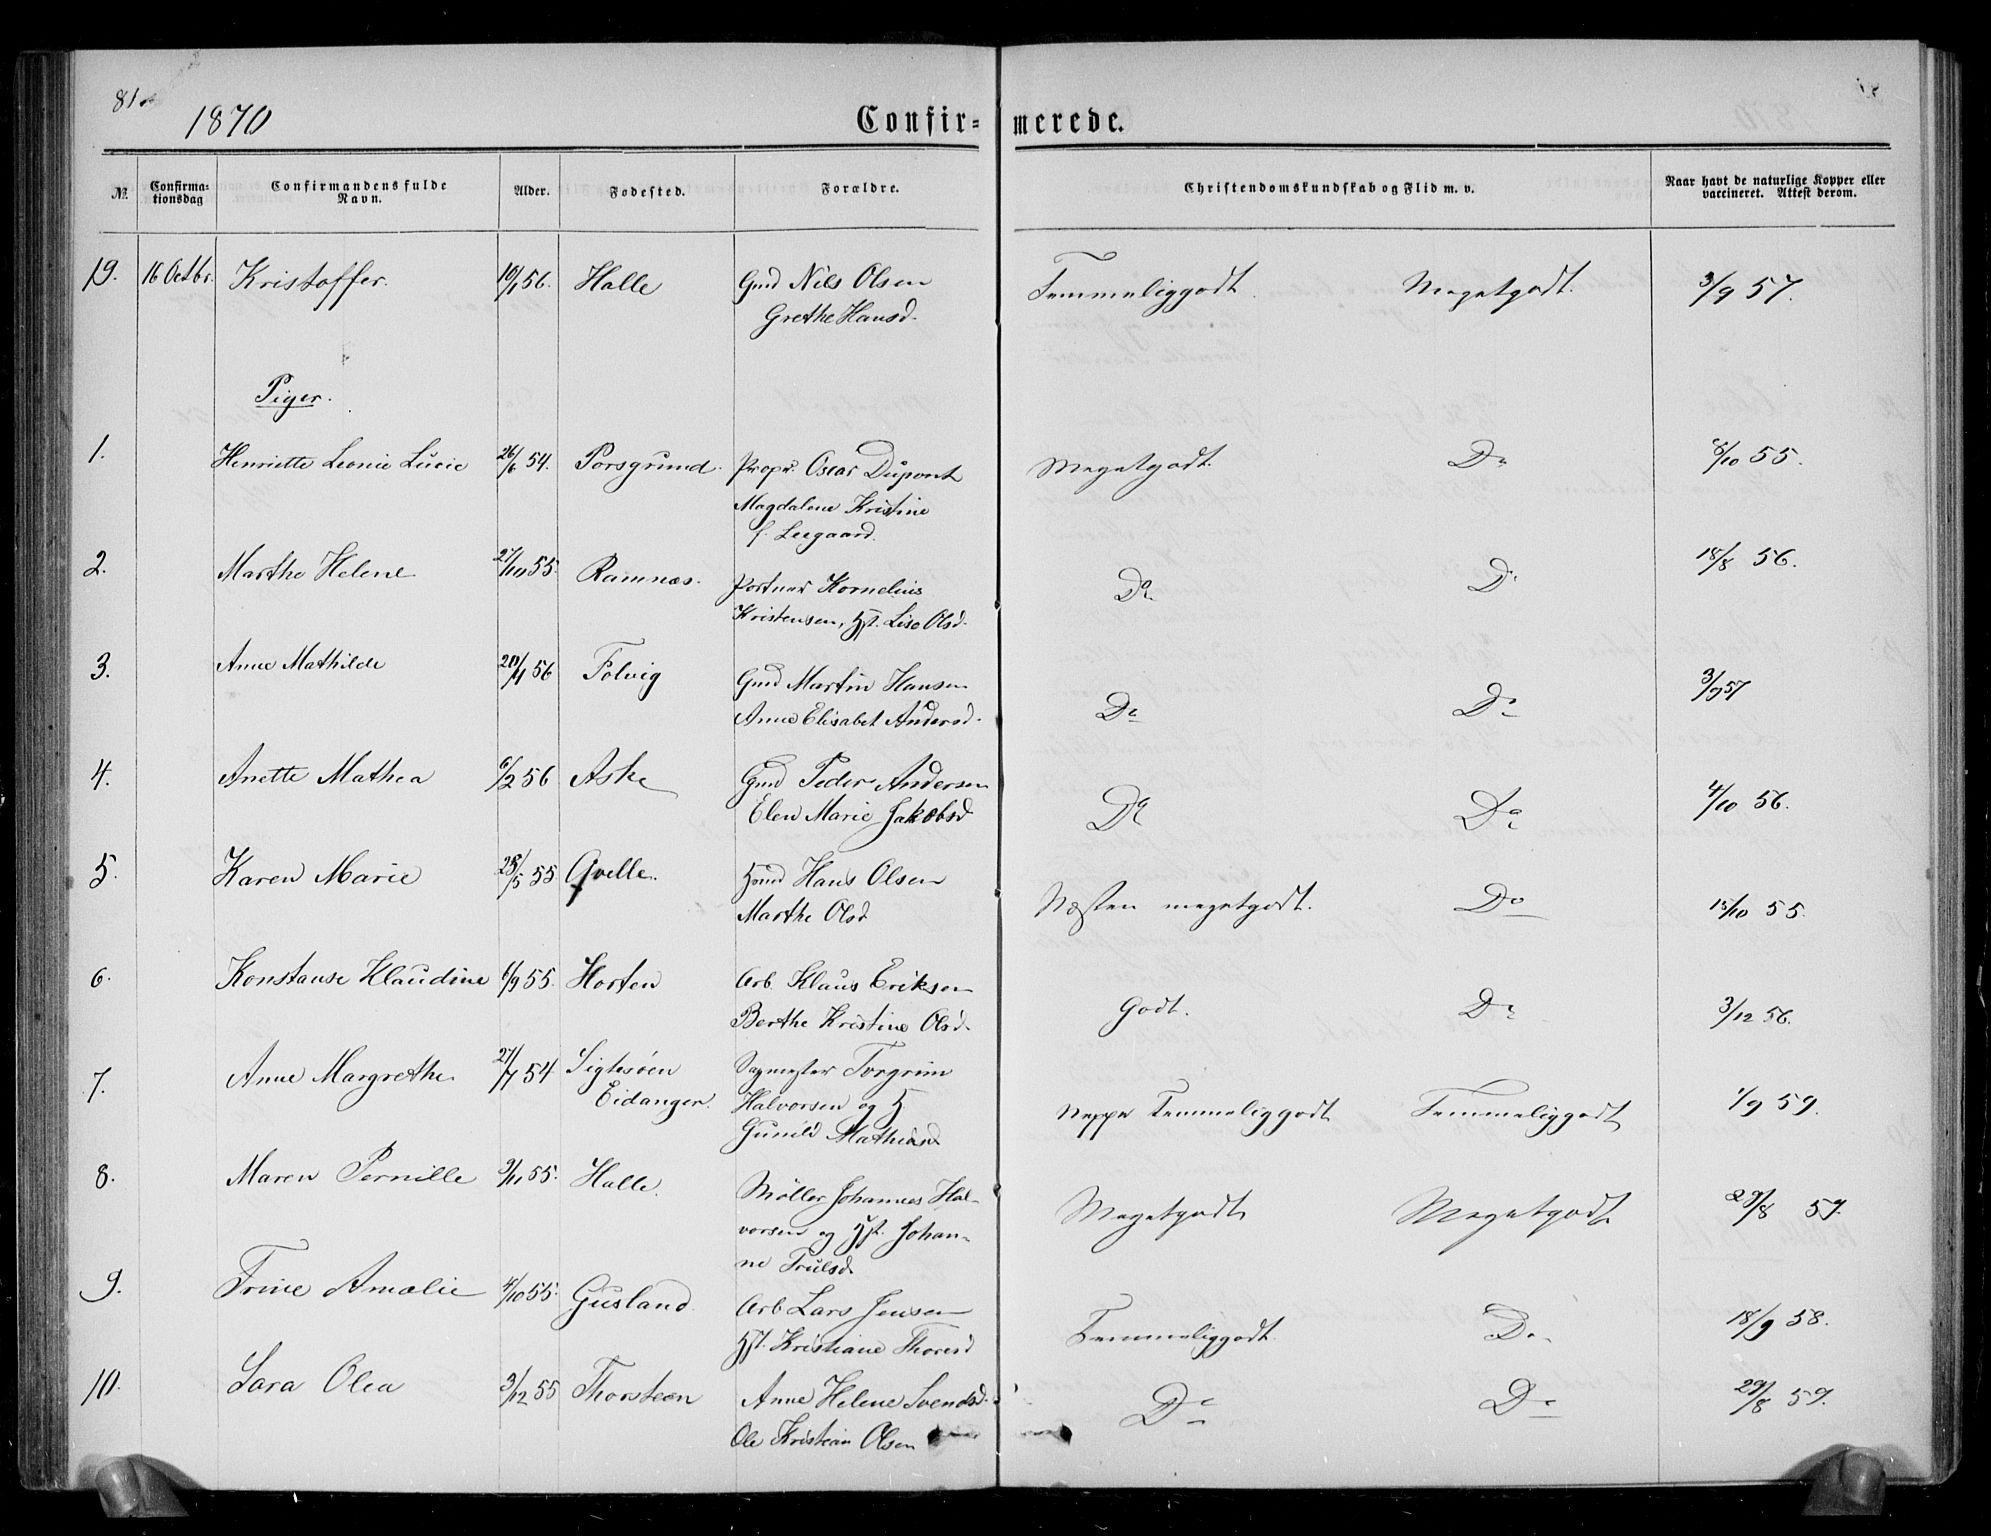 81.
1870
Confir= merede.
No. Confirma=tionsdag Confirmandens fulde Navn. Alder. Fødested. Forældre. Christendomskundskab og Flid m. v. Naar havt de naturlige Kopper eller vaccineret. Attest derom.
19. 16 Octbr. Kristoffer. 10/1 56. Halle Gmd Nils Olsen Temmeliggodt. Megetgodt. 3/9 57.
Grethe Hansd.
Piger.
1. Henriette Leonie Lucie 26/6 54. Porsgrund. Propr. Oscar Dupont Megetgodt. Do 8/10 55.
Magdalene Kristine
f. Leegaard.
2. Marthe Helene 27/10 55. Ramnæs. Portner Kornelius Do Do 18/8 56.
Kristensen, Hst. Lise Olsd.
3. Anne Mathilde 20/4 56 Tolvig Gmd Martin Hansen Do Do 3/9 57
Anne Elisabet Andersd.
4. Anette Mathea 6/2 56 Aske Gmd Peder Andersen Do Do 4/10 56.
Elen Marie Jakobsd
5. Karen Marie 28/5 55 Qvelle. Hmd Hans Olsen Næsten megetgodt. Do 13/10 55.
Marthe Olsd
6. Konstanse Klaudine 6/9 55. Horten Arb. Klaus Eriksen Godt. Do 3/12 56.
Berthe Kristine Olsd.
7. Anne Margrethe 27/7 54 Sigtesøen Sagmester Torgrim Neppe Temmeliggodt Temmeliggodt 1/9 59.
Eidanger. Halvorsen og H
Gunild Mathiasd
8. Maren Pernille 9/11 55. Halle. Møller Johannes Hal-
vorsen og Hst. Johan- Megetgodt Megetgodt 29/8 59.
ne Trulsd.
9. Trine Amalie 4/10 55. Gusland. Arb Lars Jensen Temmeliggodt. Do 18/9 58.
Hst. Kristiane Thoresd
10. Sara Olea 3/12 55 Thorsteen Anne Helene Svendsd. Do Do 29/8 59.
Ole Kristian Olsen